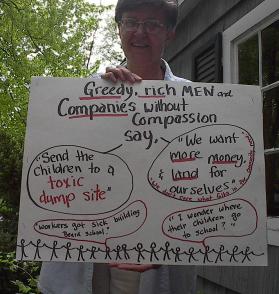 Greedy, rich MEN and
Companies without
Compassion
say,
"Send the
children to a
toxic
dump site"
"We want
more money,
& land for
ourselves"
We don't care what
Workers got sick building
Beard school.
"I wonder where
their children go
to school?"